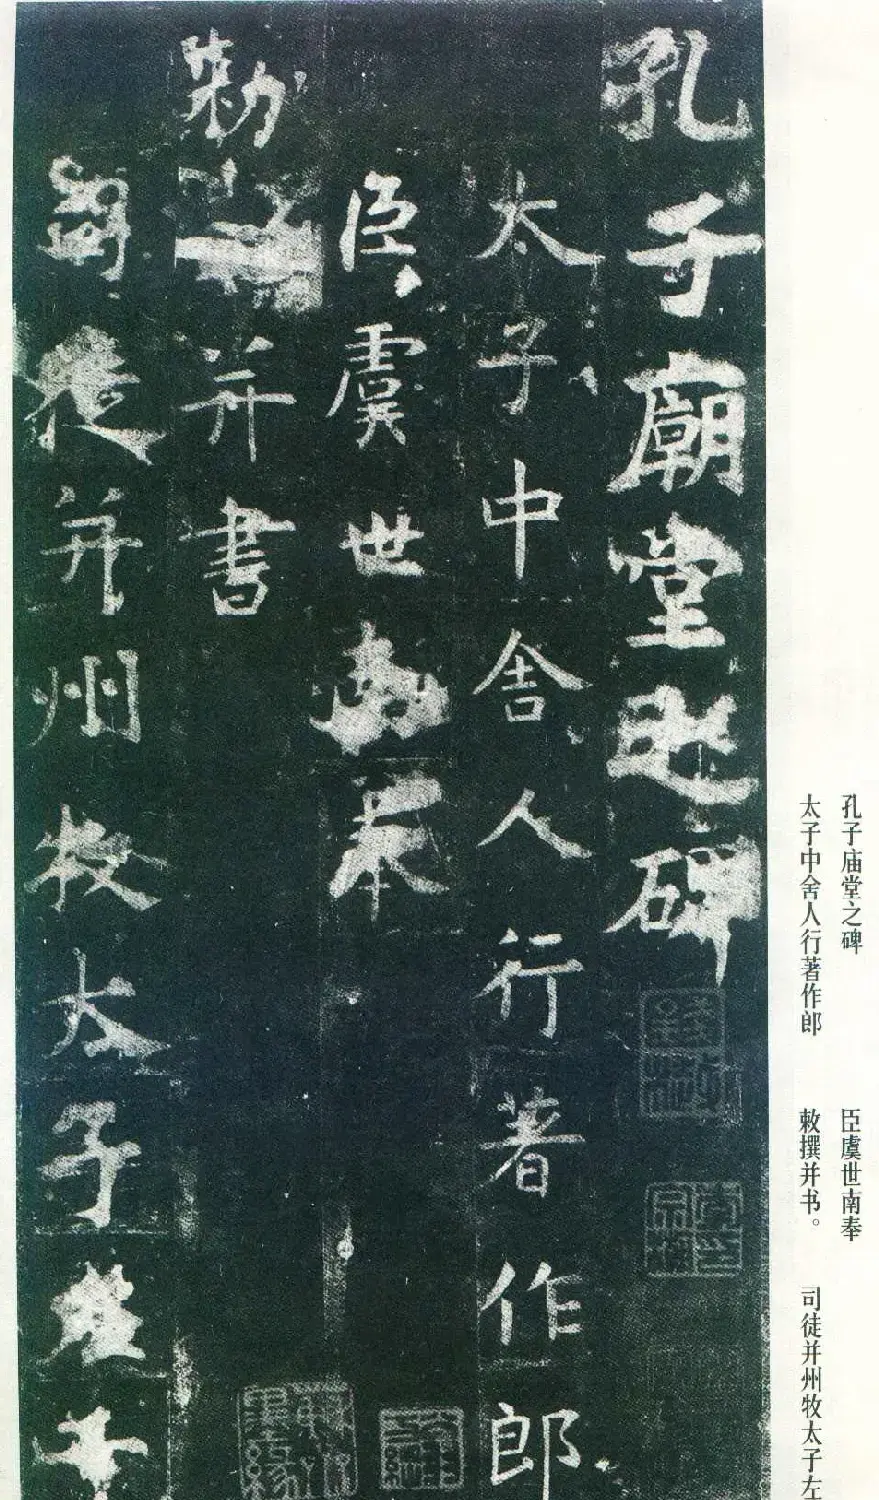 孔子廟堂之碑
太子中舍人行著作郎
臣虞世南奉
勅撰并書
司徒并州牧太子左
孔子庙堂之碑　臣虞世南奉
太子中舍人行著作郎　敕撰并书。　司徒并州牧太子左